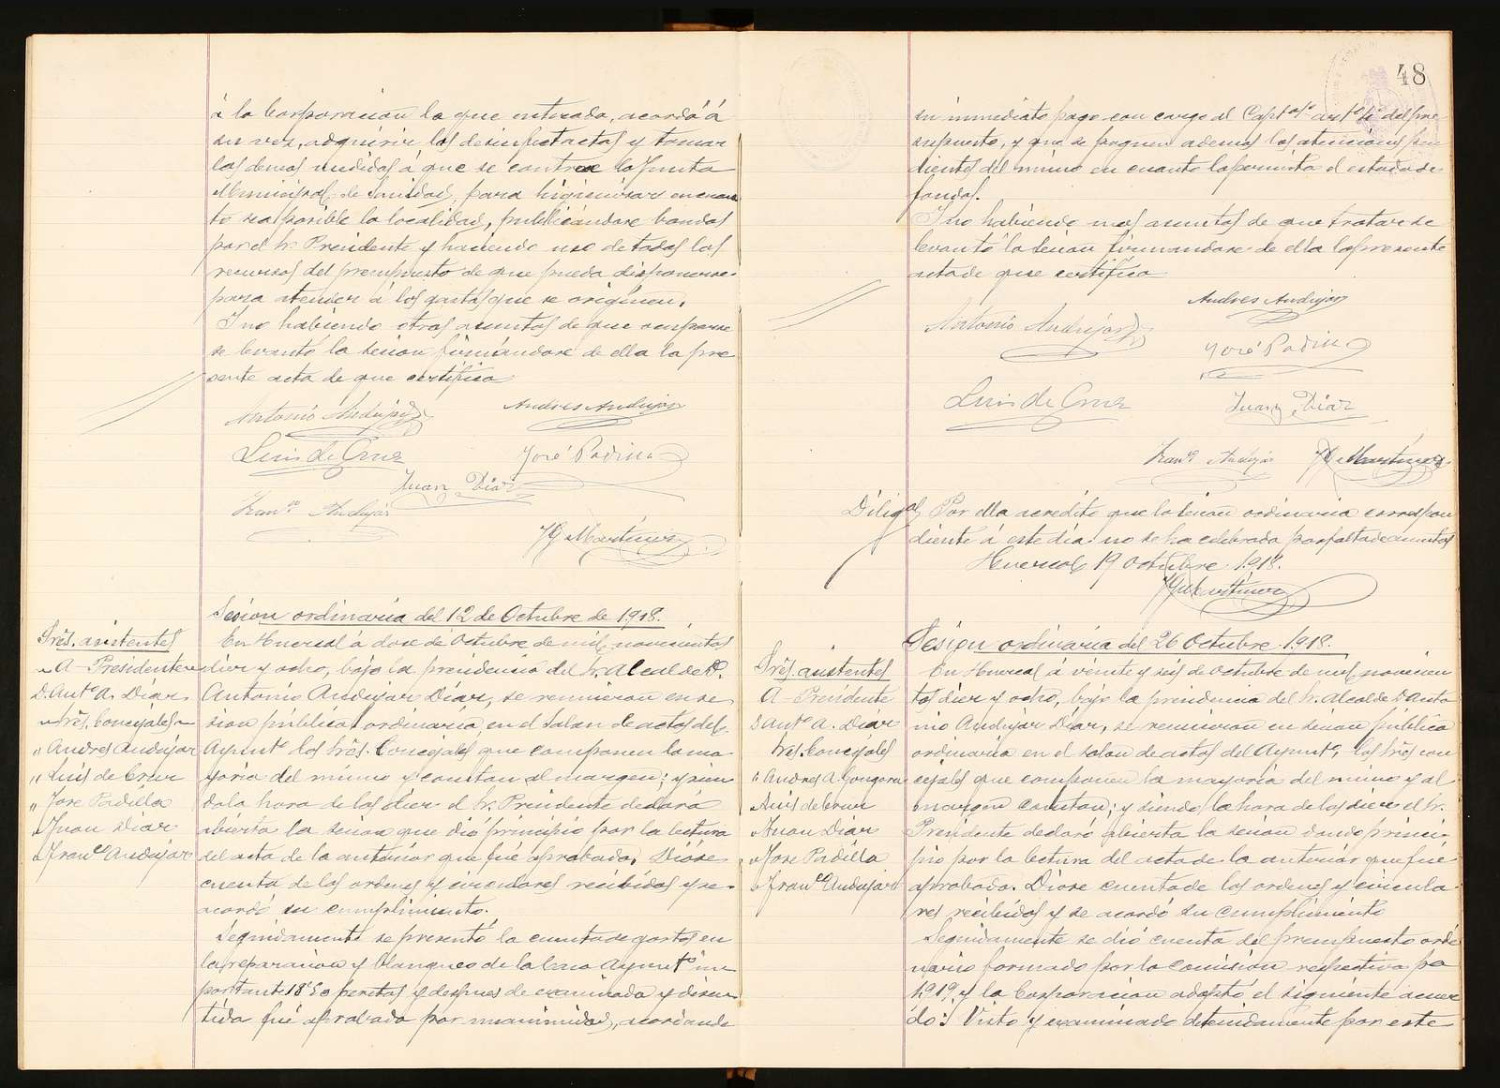 á la Corporación la que enterada, acordó á
su vez, adquirir los desinfectantes y tomar
las demas medidas á que se contrae la Junta
Municipal de Sanidad, para higienizar en cuan
to sea posible la localidad, publicándose bandos
por el Sr. Presidente y haciendo uso de todos los
recursos del presupuesto de que pueda disponerse
para atender á los gastos que se originen.
Y no habiendo otros asuntos de que ocuparse
se levantó la sesion firmándose de ella la pre
sente acta de que certifico
Antonio Andujar D
Andres Andujar
Luis de Cruz
José Padilla
Juan Diaz
Franco Andujar
Martinez
Sesion ordinaria del 12 de Octubre de 1918.
Sres. asistentes
A Presidente
D. Anto A. Diaz
Sres. Concejales
" Andres Andujar
" Luis de Cruz
" Jose Padilla
" Juan Diaz
" Franco Andujar
En Huercal á doce de Octubre de mil novecientos
diez y ocho, bajo la presidencia del Sr. Alcalde D.
Antonio Andujar Diaz, se reunieron en se
sion pública ordinaria en el salon de actos del
Ayunto los Sres. Concejales que componen la ma
yoria del mismo y constan al margen; y sien
do la hora de las diez el Sr. Presidente declaró
abierta la sesion que dió principio por la lectura
del acta de la anterior que fué aprobada. Dióse
cuenta de las ordenes y circulares recibidas y se
acordó su cumplimiento.
Seguidamente se presentó la cuenta de gastos en
la reparacion y blanqueo de la Casa Ayunto im
portante 18'50 pesetas y despues de examinada y discu
tida fué aprobada por unanimidad, acordando
48
su inmediato pago con cargo al Capto arto del pre
supuesto, y que se paguen ademas las atenciones pen
dientes del mismo en cuanto lo permita el estado de
fondos.
Y no habiendo mas asuntos de que tratar se
levantó la sesion firmandose de ella la presente
acta de que certifico
Antonio Andujar D
Andres Andujar
José Padilla
Luis de Cruz
Juan Diaz
Franco Andujar
Martinez
Diliga Por ella acredito que la sesion ordinaria correspon
diente á este dia no se ha celebrado por falta de asuntos
Huercal 19 Octubre 1918.
Martinez
Sesion ordinaria del 26 Octubre 1918.
Sres. asistentes
A Presidente
D Anto A. Diaz
Sres. Concejales
" Andres A. Gongora
" Luis de Cruz
" Juan Diaz
" Jose Padilla
" Franco Andujar
En Huercal á veinte y seis de Octubre de mil novecien
tos diez y ocho, bajo la presidencia del Sr. Alcalde D. Anto
nio Andujar Diaz, se reunieron en sesion publica
ordinaria en el salon de actos del Ayunto, los Sres con
cejales que componen la mayoria del mismo y al
margen constan; y siendo la hora de las diez el Sr.
Presidente declaró abierta la sesion dando princi
pio por la lectura del acta de la anterior que fué
aprobada. Diose cuenta de las ordenes y circula
res recibidas y se acordó su cumplimiento
Seguidamente se dió cuenta del presupuesto ordi
nario formado por la comisión respectiva pa
1919 y la Corporacion adoptó el siguiente acuer
do: Visto y examinado detenidamente por este